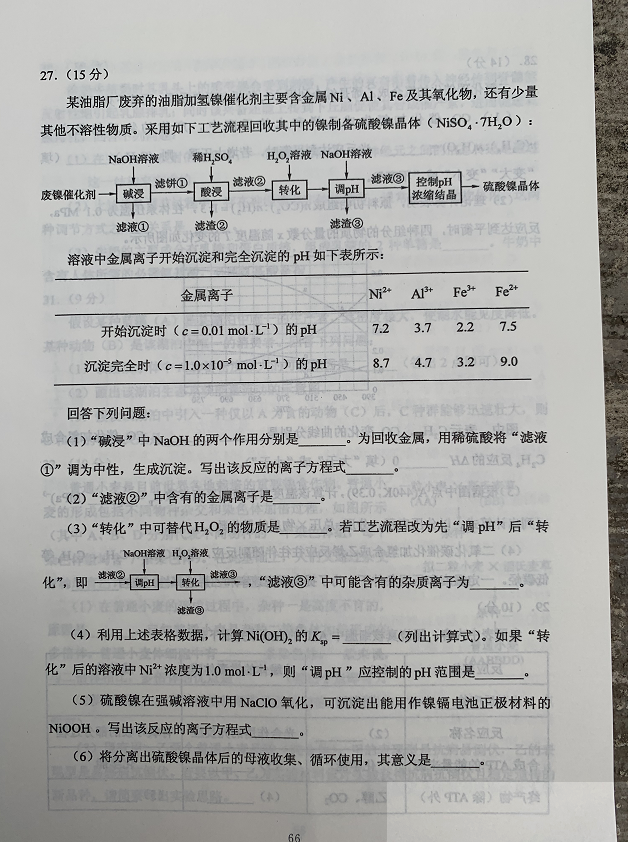 27.（15 分）
某油脂厂废弃的油脂加氢镍催化剂主要含金属 Ni 、Al 、Fe 及其氧化物，还有少量
其他不溶性物质。采用如下工艺流程回收其中的镍制备硫酸镍晶体（NiSO₄ · 7H₂O）：
NaOH溶液 稀H₂SO₄ H₂O₂溶液 NaOH溶液
废镍催化剂 碱浸 滤饼① 酸浸 滤液② 转化 调pH 滤液③ 控制pH 浓缩结晶 硫酸镍晶体
滤液① 滤渣② 滤渣③
溶液中金属离子开始沉淀和完全沉淀的 pH 如下表所示：
金属离子 Ni²⁺ Al³⁺ Fe³⁺ Fe²⁺
开始沉淀时（c = 0.01 mol·L⁻¹）的 pH 7.2 3.7 2.2 7.5
沉淀完全时（c = 1.0×10⁻⁵ mol·L⁻¹）的 pH 8.7 4.7 3.2 9.0
回答下列问题：
（1）“碱浸”中 NaOH 的两个作用分别是______。为回收金属，用稀硫酸将“滤液
①”调为中性，生成沉淀。写出该反应的离子方程式______。
（2）“滤液②”中含有的金属离子是______。
（3）“转化”中可替代 H₂O₂ 的物质是______。若工艺流程改为先“调 pH”后“转
NaOH溶液 H₂O₂溶液
化”，即 滤液② 调pH 转化 滤液③ ，“滤液③”中可能含有的杂质离子为______。
滤渣③
（4）利用上述表格数据，计算 Ni(OH)₂ 的 Kₛₚ = ______（列出计算式）。如果“转
化”后的溶液中 Ni²⁺ 浓度为 1.0 mol·L⁻¹，则“调 pH”应控制的 pH 范围是______。
（5）硫酸镍在强碱溶液中用 NaClO 氧化，可沉淀出能用作镍镉电池正极材料的
NiOOH 。写出该反应的离子方程式______。
（6）将分离出硫酸镍晶体后的母液收集、循环使用，其意义是______。
66